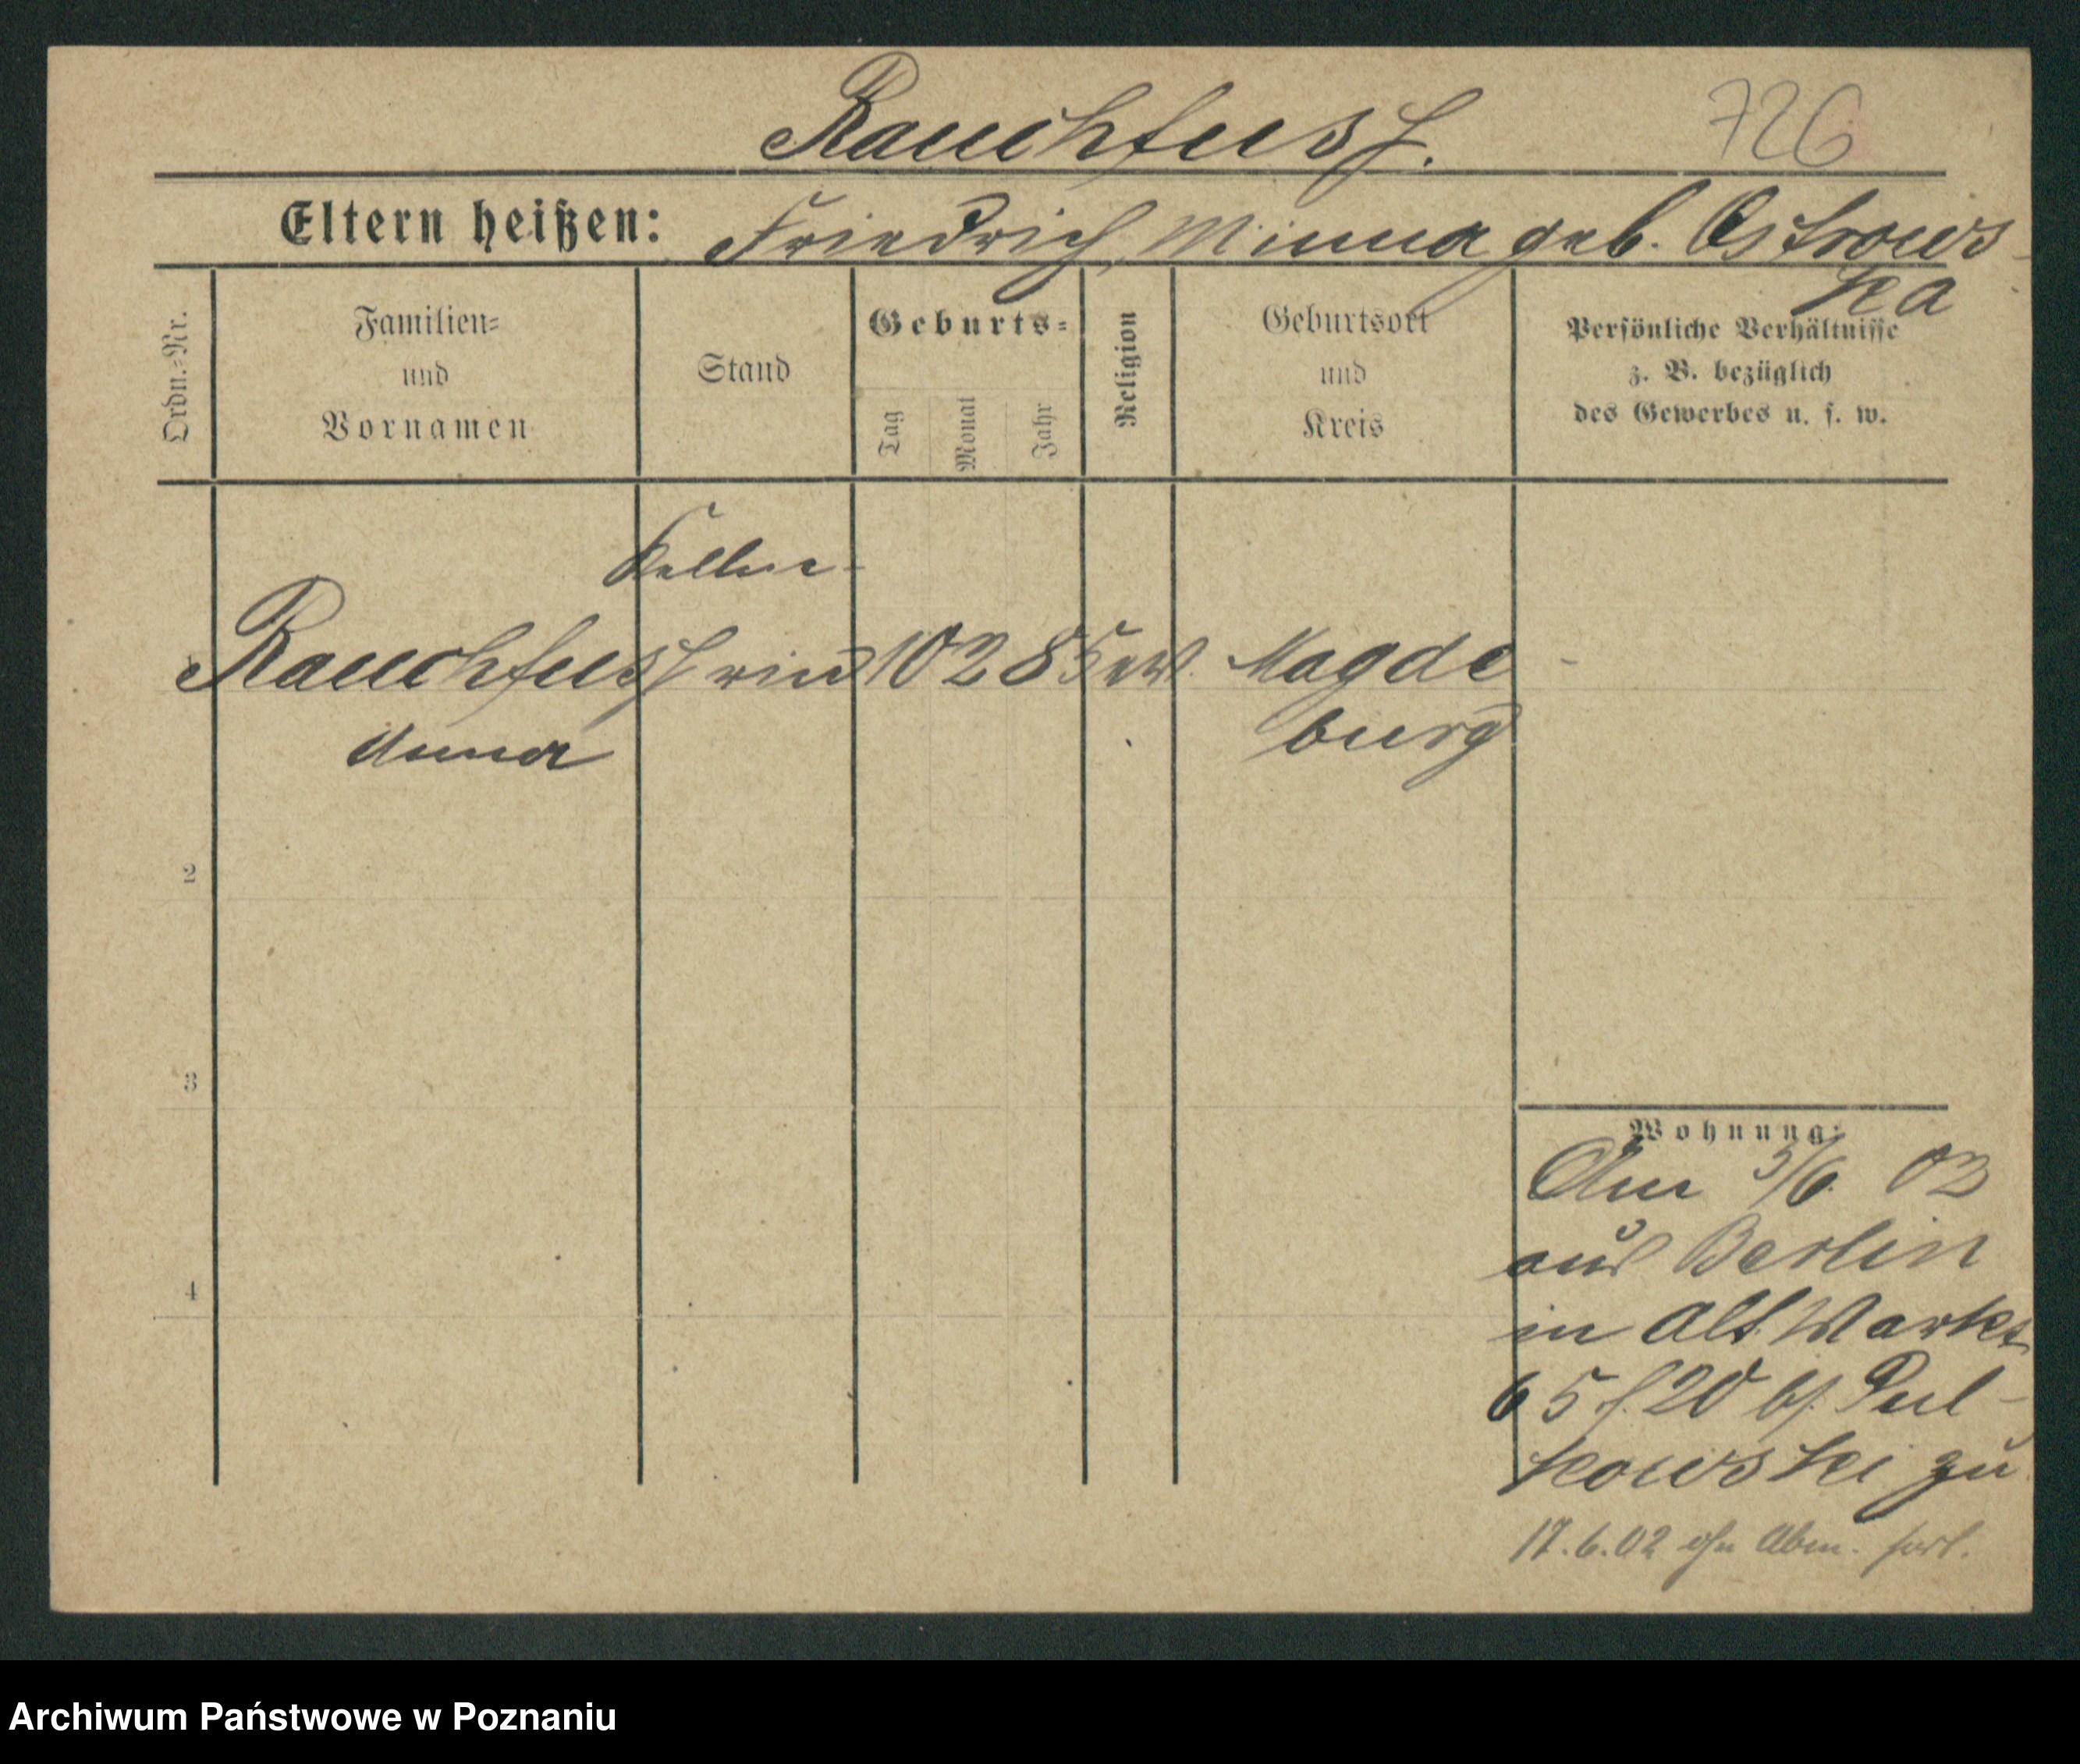 Rauchfuss.
726
Eltern heißen: Friedrich, Minna geb. Ostrows-
ka
Ordn.-Nr.
Familien-
und
Vornamen
Stand
Geburts-
Tag
Monat
Jahr
Religion
Geburtsort
und
Kreis
Persönliche Verhältnisse
z. B. bezüglich
des Gewerbes u. s. w.
Kellne-
Rauchfuss rin 10 2 85 ev. Magde-
Anna
burg
2
3
4
Wohnung:
Am 5/6. 02
aus Berlin
in Alt. Markt
65 20 b/ Pul-
kowski zu
17.6.02 Abm. fort.